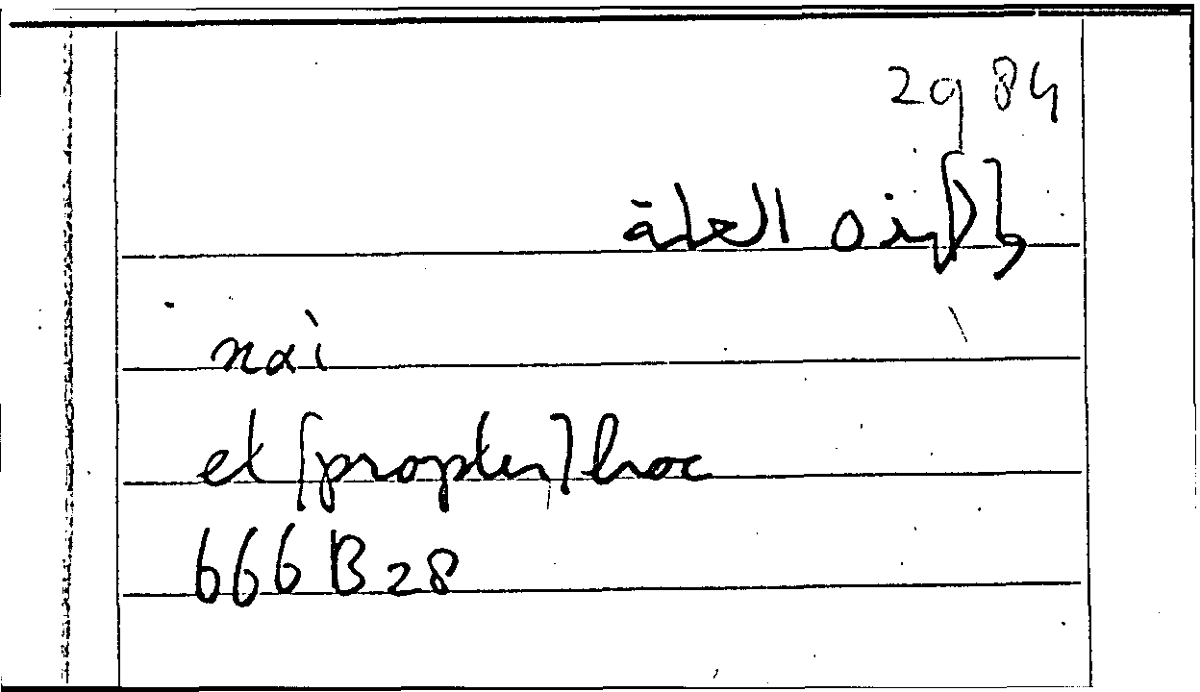 29 84
و[ل]هذه العلة
καὶ
et [propter] hoc
666 B 28